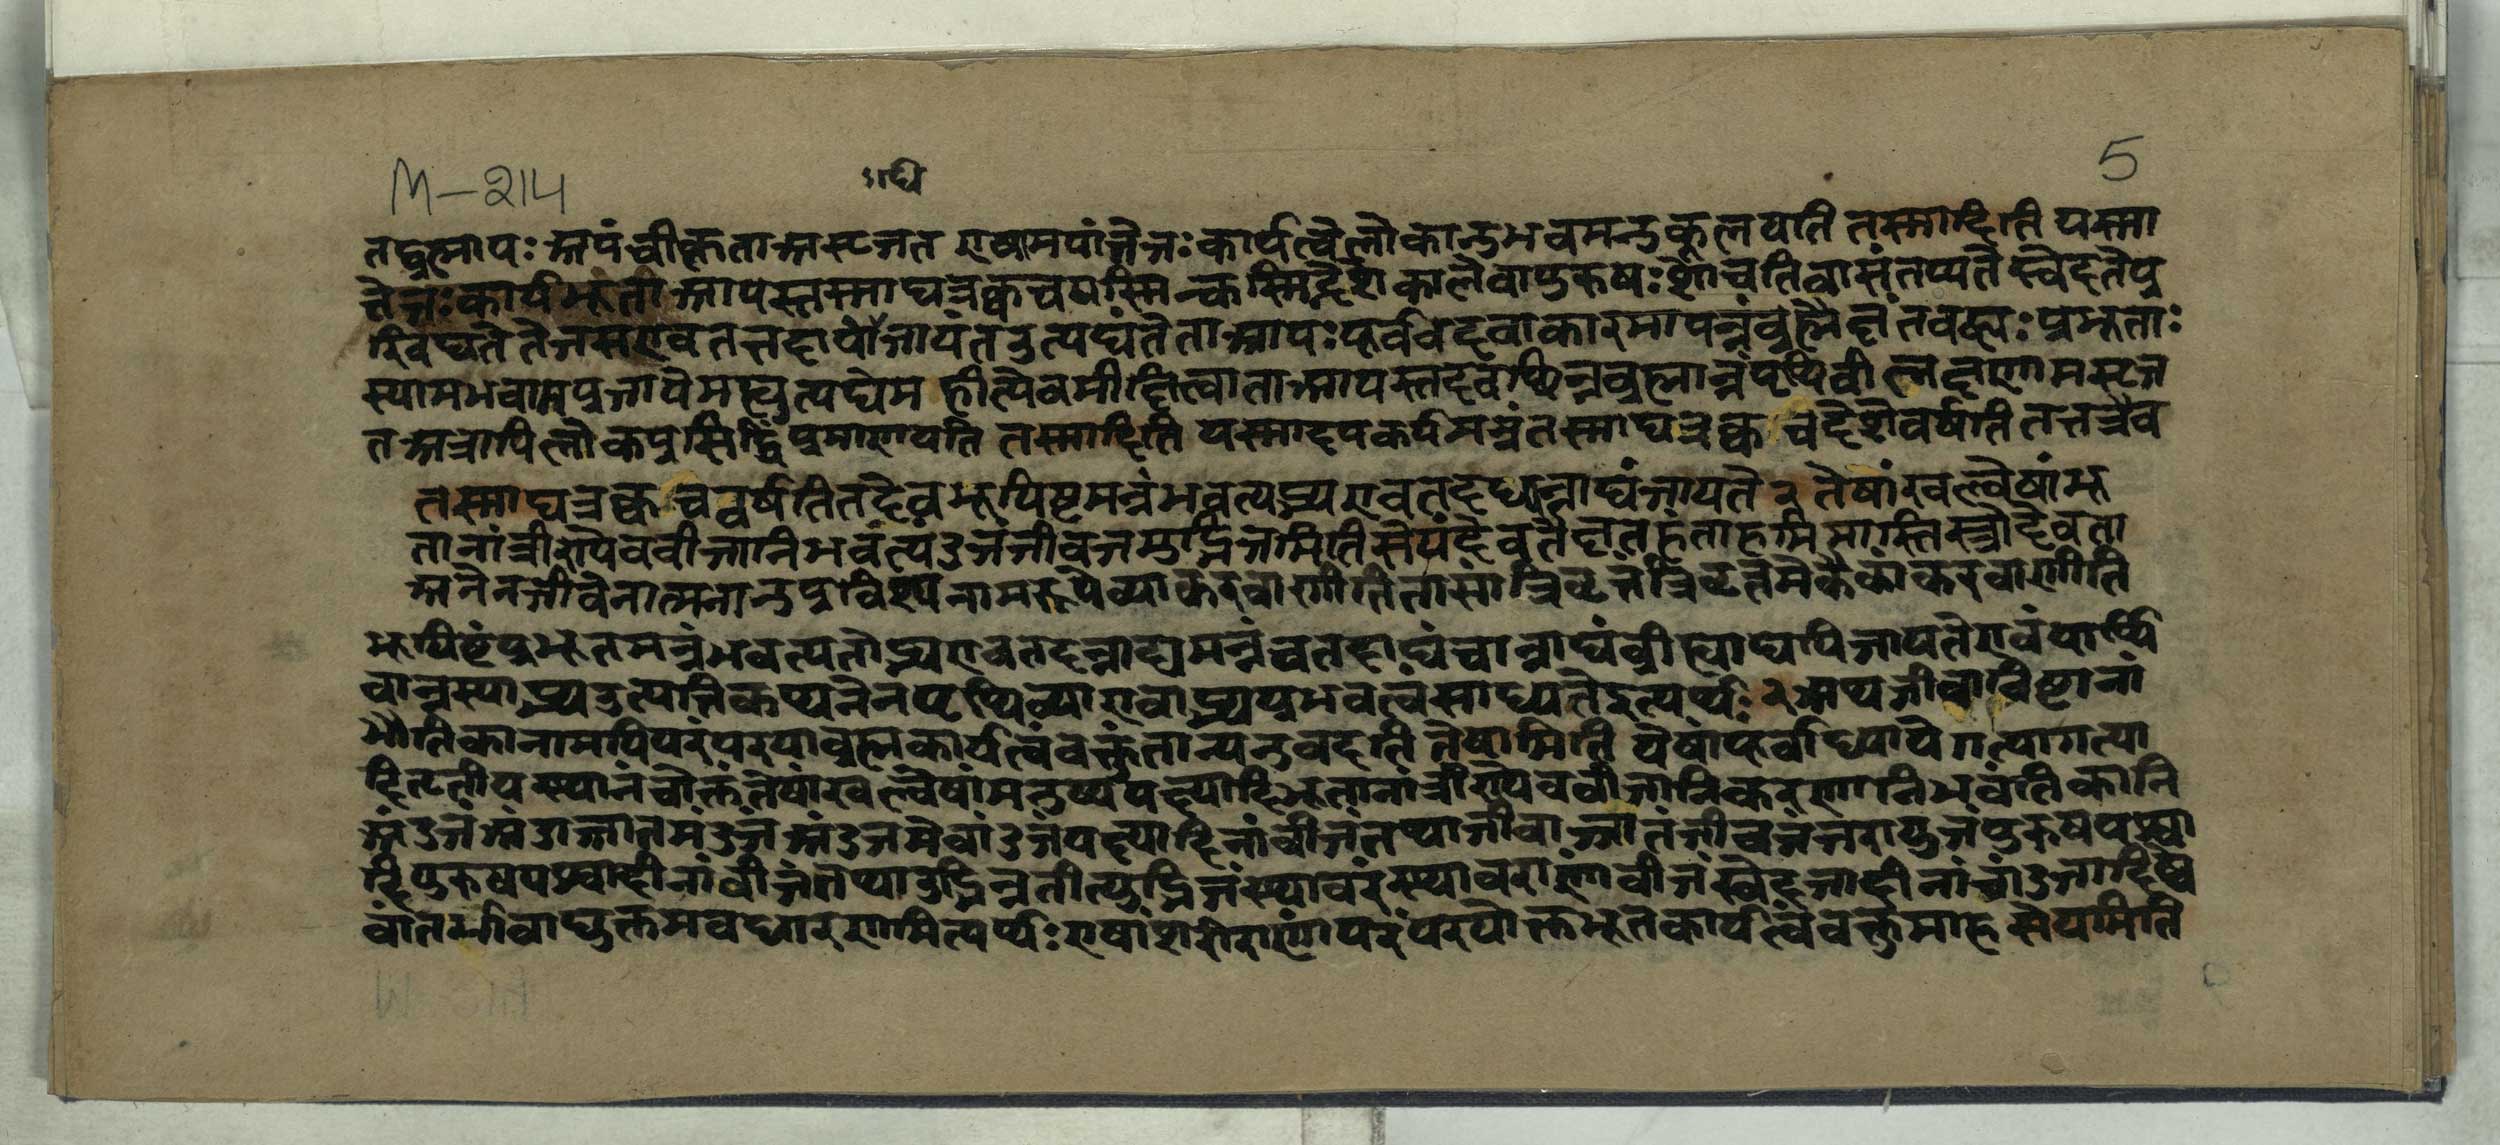 M-214
द्य
5
तद्ब्रह्माप: अपंचीकृता असृजत एषामपांतेज:कार्यत्वेलोकानुभवमनुकूलयति तस्मादिति यस्मा
तेज:कार्यभूता आपस्तस्माद्यत्रक्वचयस्मिन्कस्मिंद्देशेकालेवापुरुष:शोचतिवासंतप्यते स्वेदतेप्र
स्विद्यते तेजसएवतत्तदापोजायंतउत्पद्यंतेताआप:पूर्ववदेवाकारमापन्नंब्रह्मैक्षंतबह्व्य:प्रभूता:
स्यामभवामप्रजायेमह्युत्पद्येम हीत्येवमीक्षित्वाताआपस्तदवच्छिन्नंब्रह्मान्नंपृथिवीलक्षणमसृज
त अत्रापिलोकप्रसिद्धिंप्रमाणयति तस्मादिति यस्मादपकार्यमन्नंतस्माद्यत्रक्वचदेशेवर्षतितत्तत्रैव
तस्माद्यत्रक्वचवर्षतितदेवभूयिष्टमन्नंभवत्यद्भ्यएवतदध्यन्नाद्यंजायते २ तेषांखल्वेषांभू
तानांत्रीण्येवबीजानिभवंत्यंडजंजीवजमुद्भिजमितिसेयंदेवतैक्षतहंताहमिमास्तिस्त्रोदेवता
अनेनजीवेनात्मनानुप्रविश्यनामरूपेव्याकरवाणीतितासांत्रिवृतंत्रिवृतमेकैकांकरवाणीति
भूयिष्ठंप्रभूतमन्नंभवत्यतोद्भ्यएवतदन्नाद्यमन्नंचतदाद्यंचान्नाद्यंव्रीह्याद्यपिजायतेएवंपार्थि
वान्नस्याद्भ्यउत्पत्तिकथनेनपृथिव्याएवाद्भ्यप्रभवत्वंसाध्यतेइत्यर्थ: २ अथजीवाविष्टानां
भौतिकानामपिपरंपरयाब्रह्मकार्यत्वंवक्तुंतान्यनुवदति तेषामिति येषांपूर्वाध्यायेगत्यागत्या
दितृतीयस्थानंचोक्तंतेषांखल्वेषांमनुष्यपक्ष्यादिभूतानांत्रीण्येवबीजानिकरणानिभवंतिकानि
अंडजंअंडाज्जातमंडजंअंडजमेवांडजंपक्ष्यादिनांबीजंतथाजीवाज्जातंजीवजंजरायुजंपुरुषपश्वा
दिपुरुषपश्वादीनांबीजंतथाउद्भिनत्तीत्युद्भिजंस्थावरंस्थावराणांबीजंस्वेदजादीनांचांडजादिष्वे
वांतर्भावाद्युक्तमवधारणमित्यर्थ: एषांशरीराणांपरंपरयोक्तभूतकार्यत्वंवक्तुमाह सेयमिति